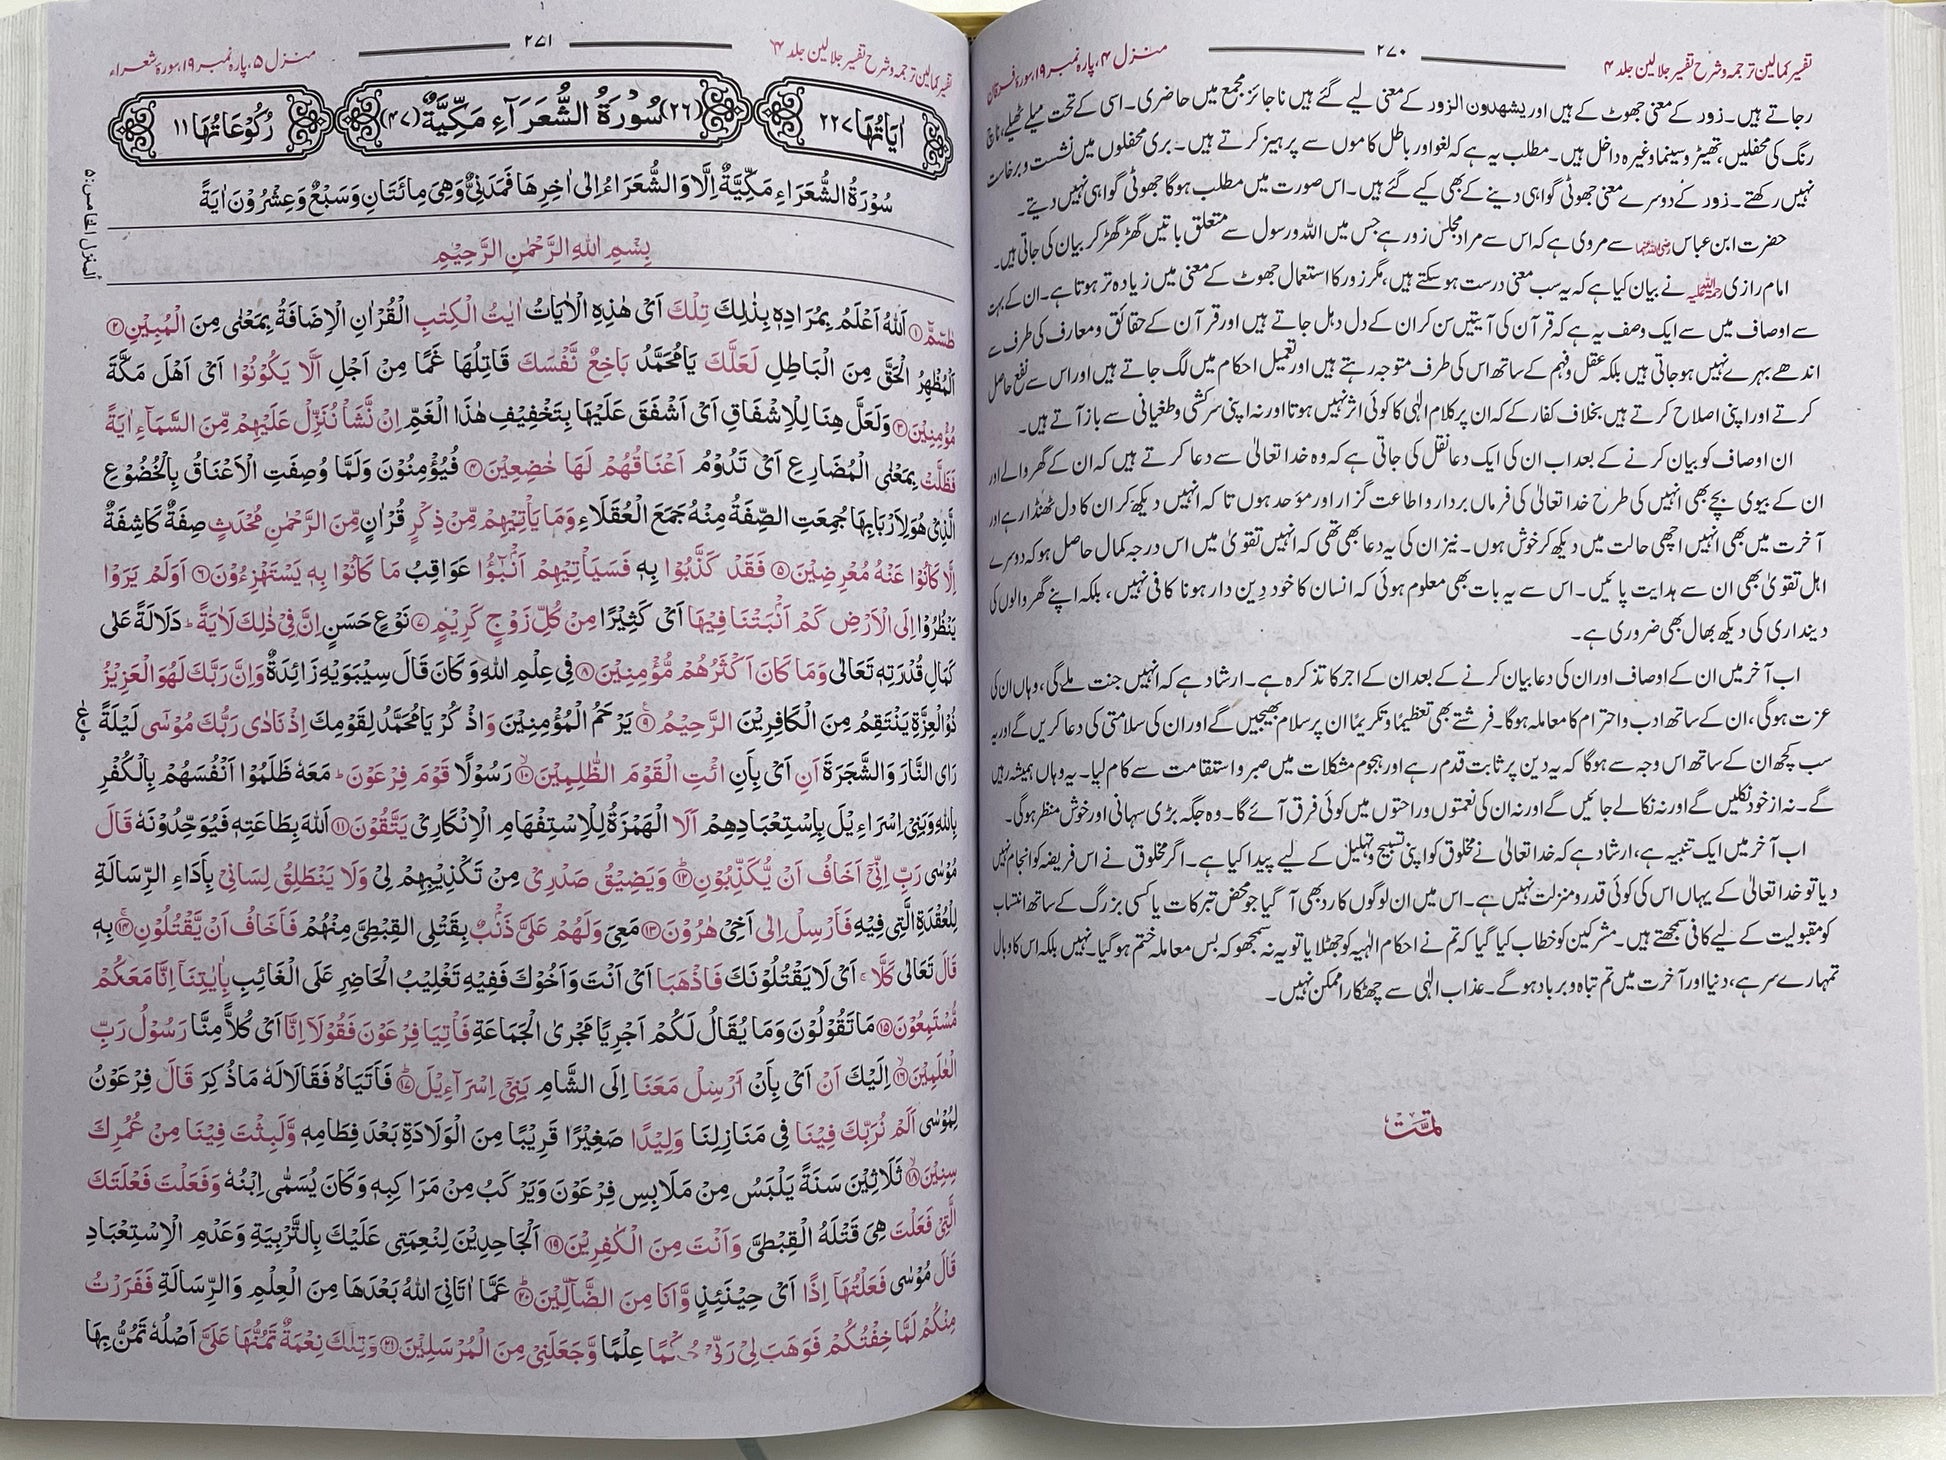 تفسیر کمالین ترجمہ و شرح تفسیر جلالین جلد ۴
۲۷۰
منزل ۴، پارہ نمبر ۱۹، سورۂ فرقان
رچاتے ہیں۔ زور کے معنی جھوٹ کے ہیں اور یشھدون الزور کے معنی لیے گئے ہیں ناجائز مجمع میں حاضری۔ اسی کے تحت میلے ٹھیلے، ناچ
رنگ کی محفلیں، تھیٹر و سینما وغیرہ داخل ہیں۔ مطلب یہ ہے کہ لغو اور باطل کاموں سے پرہیز کرتے ہیں۔ بری محفلوں میں نشست و برخاست
نہیں رکھتے۔ زور کے دوسرے معنی جھوٹی گواہی دینے کے بھی کیے گئے ہیں۔ اس صورت میں مطلب ہوگا جھوٹی گواہی نہیں دیتے۔
حضرت ابن عباس رضی اللہ عنہما سے مروی ہے کہ اس سے مراد مجلس زور ہے جس میں اللہ و رسول سے متعلق باتیں گھڑ گھڑ کر بیان کی جاتی ہیں۔
امام رازی رحمۃ اللہ علیہ نے بیان کیا ہے کہ یہ سب معنی درست ہو سکتے ہیں، مگر زور کا استعمال جھوٹ کے معنی میں زیادہ تر ہوتا ہے۔ ان کے بہت
سے اوصاف میں سے ایک وصف یہ ہے کہ قرآن کی آیتیں سن کر ان کے دل دہل جاتے ہیں اور قرآن کے حقائق و معارف کی طرف سے
اندھے بہرے نہیں ہو جاتی ہیں بلکہ عقل و فہم کے ساتھ اس کی طرف متوجہ رہتے ہیں اور تعمیل احکام میں لگ جاتے ہیں اور اس سے نفع حاصل
کرتے اور اپنی اصلاح کرتے ہیں بخلاف کفار کے کہ ان پر کلام الٰہی کا کوئی اثر نہیں ہوتا اور نہ اپنی سرکشی و طغیانی سے باز آتے ہیں۔
ان اوصاف کو بیان کرنے کے بعد اب ان کی ایک دعا نقل کی جاتی ہے کہ وہ خدا تعالیٰ سے دعا کرتے ہیں کہ ان کے گھر والے اور
ان کے بیوی بچے بھی انہیں کی طرح خدا تعالیٰ کی فرماں بردار و اطاعت گزار اور موحد ہوں تا کہ انہیں دیکھ کر ان کا دل ٹھنڈا رہے اور
آخرت میں بھی انہیں اچھی حالت میں دیکھ کر خوش ہوں۔ نیز ان کی یہ دعا بھی تھی کہ انہیں تقویٰ میں اس درجہ کمال حاصل ہو کہ دوسرے
اہل تقویٰ بھی ان سے ہدایت پائیں۔ اس سے یہ بات بھی معلوم ہوئی کہ انسان کا خود دین دار ہونا کافی نہیں، بلکہ اپنے گھر والوں کی
دینداری کی دیکھ بھال بھی ضروری ہے۔
اب آخر میں ان کے اوصاف اور ان کی دعا بیان کرنے کے بعد ان کے اجر کا تذکرہ ہے۔ ارشاد ہے کہ انہیں جنت ملے گی، وہاں ان کی
عزت ہوگی، ان کے ساتھ ادب و احترام کا معاملہ ہوگا۔ فرشتے بھی تعظیماً و تکریماً ان پر سلام بھیجیں گے اور ان کی سلامتی کی دعا کریں گے اور یہ
سب کچھ ان کے ساتھ اس وجہ سے ہوگا کہ یہ دین پر ثابت قدم رہے اور ہجوم مشکلات میں صبر و استقامت سے کام لیا۔ یہ وہاں ہمیشہ رہیں
گے۔ نہ از خود نکلیں گے اور نہ نکالے جائیں گے اور نہ ان کی نعمتوں و راحتوں میں کوئی فرق آئے گا۔ وہ جگہ بڑی سہانی اور خوش منظر ہوگی۔
اب آخر میں ایک تنبیہ ہے، ارشاد ہے کہ خدا تعالیٰ نے مخلوق کو اپنی تسبیح و تہلیل کے لیے پیدا کیا ہے۔ اگر مخلوق نے اس فریضہ کو انجام نہیں
دیا تو خدا تعالیٰ کے یہاں اس کی کوئی قدر و منزلت نہیں ہے۔ اس میں ان لوگوں کا رد بھی آ گیا جو محض تبرکات یا کسی بزرگ کے ساتھ انتساب
کو مقبولیت کے لیے کافی سمجھتے ہیں۔ مشرکین کو خطاب کیا گیا کہ تم نے احکام الٰہیہ کو جھٹلایا تو یہ نہ سمجھو کہ بس معاملہ ختم ہو گیا۔ نہیں بلکہ اس کا وبال
تمہارے سر ہے، دنیا اور آخرت میں تم تباہ و برباد ہو گے۔ عذاب الٰہی سے چھٹکارا ممکن نہیں۔
تمّت
تفسیر کمالین ترجمہ و شرح تفسیر جلالین جلد ۴
۲۷۱
منزل ۵، پارہ نمبر ۱۹، سورۂ شعراء
اٰیَاتُهَا ۲۲۷
(۲۶) سُوْرَةُ الشُّعَرَآءِ مَكِّيَّةٌ (۴۷)
رُكُوْعَاتُهَا ۱۱
سُوْرَةُ الشُّعَرَاءِ مَكِّيَّةٌ اِلَّا وَالشُّعَرَاءُ اِلٰى اٰخِرِهَا فَمَدَنِيٌّ وَهِىَ مِائَتَانِ وَسَبْعٌ وَعِشْرُوْنَ اٰيَةً
بِسْمِ اللهِ الرَّحْمٰنِ الرَّحِيْمِ
المنزل الخامس:۵
طٰسٓمّٓ ۝۱ اَللّٰهُ اَعْلَمُ بِمُرَادِهٖ بِذٰلِكَ تِلْكَ اَىْ هٰذِهِ الْاٰيَاتُ اٰيٰتُ الْكِتٰبِ الْقُرْاٰنِ الْاِضَافَةُ بِمَعْنٰى مِنَ الْمُبِيْنِ ۝۲
اَلْمُظْهِرُ الْحَقَّ مِنَ الْبَاطِلِ لَعَلَّكَ يَا مُحَمَّدُ بَاخِعٌ نَّفْسَكَ قَاتِلُهَا غَمًّا مِنْ اَجْلِ اَلَّا يَكُوْنُوْا اَىْ اَهْلَ مَكَّةَ
مُؤْمِنِيْنَ ۝۳ وَلَعَلَّ هِنَا لِلْاِشْفَاقِ اَىْ اَشْفَقَ عَلَيْهَا بِتَخْفِيْفِ هٰذَا الْغَمِّ اِنْ نَّشَاْ نُنَزِّلْ عَلَيْهِمْ مِّنَ السَّمَآءِ اٰيَةً
فَظَلَّتْ بِمَعْنٰى الْمُضَارِعِ اَىْ تَدُوْمُ اَعْنَاقُهُمْ لَهَا خٰضِعِيْنَ ۝۴ فَيُؤْمِنُوْنَ وَلَمَّا وُصِفَتِ الْاَعْنَاقُ بِالْخُضُوْعِ
الَّذِىْ هُوَ لِاَرْبَابِهَا جُمِعَتِ الصِّفَةُ مِنْهُ جَمَعَ الْعُقَلَاءِ وَمَا يَاْتِيْهِمْ مِّنْ ذِكْرٍ قُرْاٰنٍ مِّنَ الرَّحْمٰنِ مُحْدَثٍ صِفَةٌ كَاشِفَةٌ
اِلَّا كَانُوْا عَنْهُ مُعْرِضِيْنَ ۝۵ فَقَدْ كَذَّبُوْا بِهٖ فَسَيَاْتِيْهِمْ اَنْۢبٰٓؤُا عَوَاقِبُ مَا كَانُوْا بِهٖ يَسْتَهْزِءُوْنَ ۝۶ اَوَلَمْ يَرَوْا
يَنْظُرُوْا اِلَى الْاَرْضِ كَمْ اَنْۢبَتْنَا فِيْهَا اَىْ كَثِيْرًا مِنْ كُلِّ زَوْجٍ كَرِيْمٍ ۝۷ نَوْعٍ حَسَنٍ اِنَّ فِىْ ذٰلِكَ لَاٰيَةً ؕ دَلَالَةً عَلٰى
كَمَالِ قُدْرَتِهٖ تَعَالٰى وَمَا كَانَ اَكْثَرُهُمْ مُّؤْمِنِيْنَ ۝۸ فِىْ عِلْمِ اللهِ وَكَانَ قَالَ سِيْبَوَيْهِ زَائِدَةٌ وَاِنَّ رَبَّكَ لَهُوَ الْعَزِيْزُ
ذُو الْعِزَّةِ يَنْتَقِمُ مِنَ الْكَافِرِيْنَ الرَّحِيْمُ ۝۹ يَرْحَمُ الْمُؤْمِنِيْنَ وَاذْكُرْ يَا مُحَمَّدُ لِقَوْمِكَ اِذْ نَادٰى رَبُّكَ مُوْسٰى لَيْلَةً
رَاَى النَّارَ وَالشَّجَرَةَ اَنِ اَىْ بِاَنِ ائْتِ الْقَوْمَ الظّٰلِمِيْنَ ۝۱۰ رَسُوْلًا قَوْمَ فِرْعَوْنَ ؕ مَعَهٗ ظَلَمُوْا اَنْفُسَهُمْ بِالْكُفْرِ
بِاللهِ وَبَنِىْ اِسْرَاءِيْلَ بِاِسْتِعْبَادِهِمْ اَلَا الْهَمْزَةُ لِلْاِسْتِفْهَامِ الْاِنْكَارِىْ يَتَّقُوْنَ ۝۱۱ اللهَ بِطَاعَتِهٖ فَيُوَحِّدُوْنَهٗ قَالَ
مُوْسٰى رَبِّ اِنِّىْٓ اَخَافُ اَنْ يُّكَذِّبُوْنِ ۝۱۲ وَيَضِيْقُ صَدْرِىْ مِنْ تَكْذِيْبِهِمْ لِىْ وَلَا يَنْطَلِقُ لِسَانِىْ بِاَدَاءِ الرِّسَالَةِ
لِلْعُقْدَةِ الَّتِىْ فِيْهِ فَاَرْسِلْ اِلٰى اَخِىْ هٰرُوْنَ ۝۱۳ مَعِىَ وَلَهُمْ عَلَىَّ ذَنْۢبٌ بِقَتْلِى الْقِبْطِىَّ مِنْهُمْ فَاَخَافُ اَنْ يَّقْتُلُوْنِ ۝۱۴ بِهٖ
قَالَ تَعَالٰى كَلَّا ۚ اَىْ لَا يَقْتُلُوْنَكَ فَاذْهَبَا اَىْ اَنْتَ وَاَخُوْكَ فَفِيْهِ تَغْلِيْبُ الْحَاضِرِ عَلَى الْغَائِبِ بِاٰيٰتِنَآ اِنَّا مَعَكُمْ
مُّسْتَمِعُوْنَ ۝۱۵ مَا تَقُوْلُوْنَ وَمَا يُقَالُ لَكُمْ اَجْرِيًا مَجْرَى الْجَمَاعَةِ فَاْتِيَا فِرْعَوْنَ فَقُوْلَآ اِنَّا اَىْ كُلًّا مِنَّا رَسُوْلُ رَبِّ
الْعٰلَمِيْنَ ۝۱۶ اِلَيْكَ اَنْ اَىْ بِاَنْ اَرْسِلْ مَعَنَا اِلَى الشَّامِ بَنِىْٓ اِسْرَآءِيْلَ ۝۱۷ فَاَتَيَاهُ فَقَالَا لَهٗ مَا ذُكِرَ قَالَ فِرْعَوْنُ
لِمُوْسٰى اَلَمْ نُرَبِّكَ فِيْنَا فِىْ مَنَازِلِنَا وَلِيْدًا صَغِيْرًا قَرِيْبًا مِنَ الْوِلَادَةِ بَعْدَ فِطَامِهٖ وَّلَبِثْتَ فِيْنَا مِنْ عُمُرِكَ
سِنِيْنَ ۝۱۸ ثَلَاثِيْنَ سَنَةً يَلْبَسُ مِنْ مَلَابِسِ فِرْعَوْنَ وَيَرْكَبُ مِنْ مَرَاكِبِهٖ وَكَانَ يُسَمّٰى اِبْنُهٗ وَفَعَلْتَ فَعْلَتَكَ
الَّتِىْ فَعَلْتَ هِىَ قَتْلُهُ الْقِبْطِىَّ وَاَنْتَ مِنَ الْكٰفِرِيْنَ ۝۱۹ اَلْجَاحِدِيْنَ لِنِعْمَتِىْ عَلَيْكَ بِالتَّرْبِيَةِ وَعَدْمِ الْاِسْتِعْبَادِ
قَالَ مُوْسٰى فَعَلْتُهَآ اِذًا اَىْ حِيْنَئِذٍ وَّاَنَا مِنَ الضَّآلِّيْنَ ۝۲۰ عَمَّا اٰتَانِىَ اللهُ بَعْدَهَا مِنَ الْعِلْمِ وَالرِّسَالَةِ فَفَرَرْتُ
مِنْكُمْ لَمَّا خِفْتُكُمْ فَوَهَبَ لِىْ رَبِّىْ حُكْمًا عِلْمًا وَّجَعَلَنِىْ مِنَ الْمُرْسَلِيْنَ ۝۲۱ وَتِلْكَ نِعْمَةٌ تَمُنُّهَا عَلَىَّ اَصْلُهٗ تَمُنُّ بِهَا